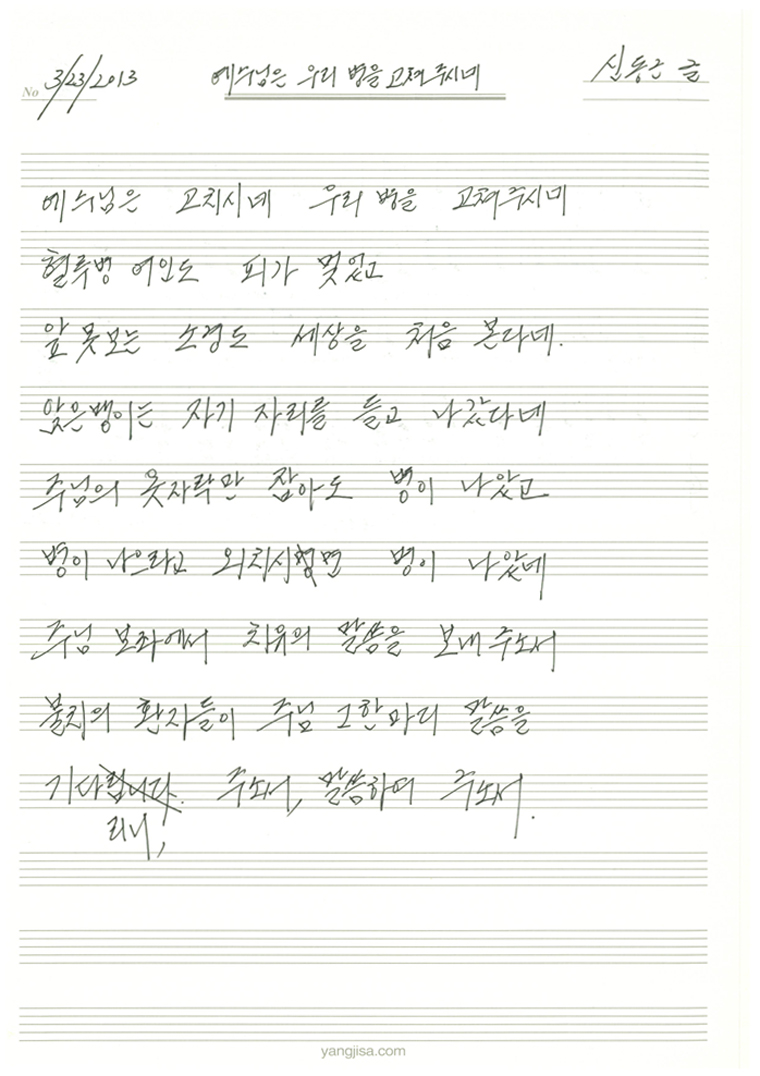 No 3/23/2013 예수님은 우리 병을 고쳐주시네 신동근 글
예수님은 고치시네 우리 병을 고쳐주시네
혈루병 여인도 피가 멎었고
앞 못 보는 소경도 세상을 처음 본다네.
앉은뱅이는 자기 자리를 들고 나갔다네
주님의 옷자락만 잡아도 병이 나았고
병이 나으라고 외치시면 병이 나았네
주님 보좌에서 치유의 말씀을 보내 주소서
불치의 환자들이 주님 그 한마디 말씀을
기다립니다. 주소서, 말씀하여 주소서.
리니,
yangjisa.com